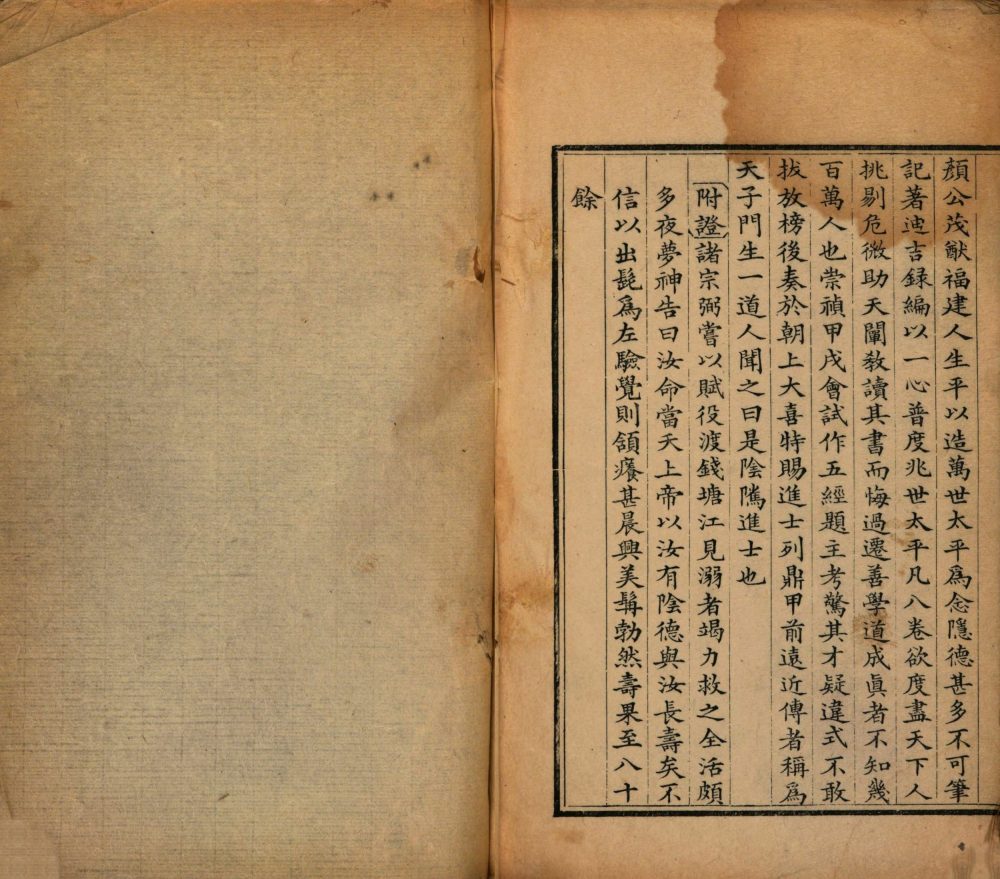 顏公茂猷福建人生平以造萬世太平爲念隱德甚多不可筆
記著迪吉録編以一心普度兆世太平凡八卷欲度盡天下人
挑剔危微助天闡敎讀其書而悔過遷善學道成眞者不知幾
百萬人也崇禎甲戌會試作五經題主考驚其才疑違式不敢
拔放榜後奏於朝上大喜特賜進士列鼎甲前遠近傳者稱爲
天子門生一道人聞之曰是陰隲進士也
附證諸宗弼嘗以賦役渡錢塘江見溺者竭力救之全活頗
多夜夢神告曰汝命當夭上帝以汝有陰德與汝長壽矣不
信以出髭爲左驗覺則頷癢甚晨興美髯勃然壽果至八十
餘